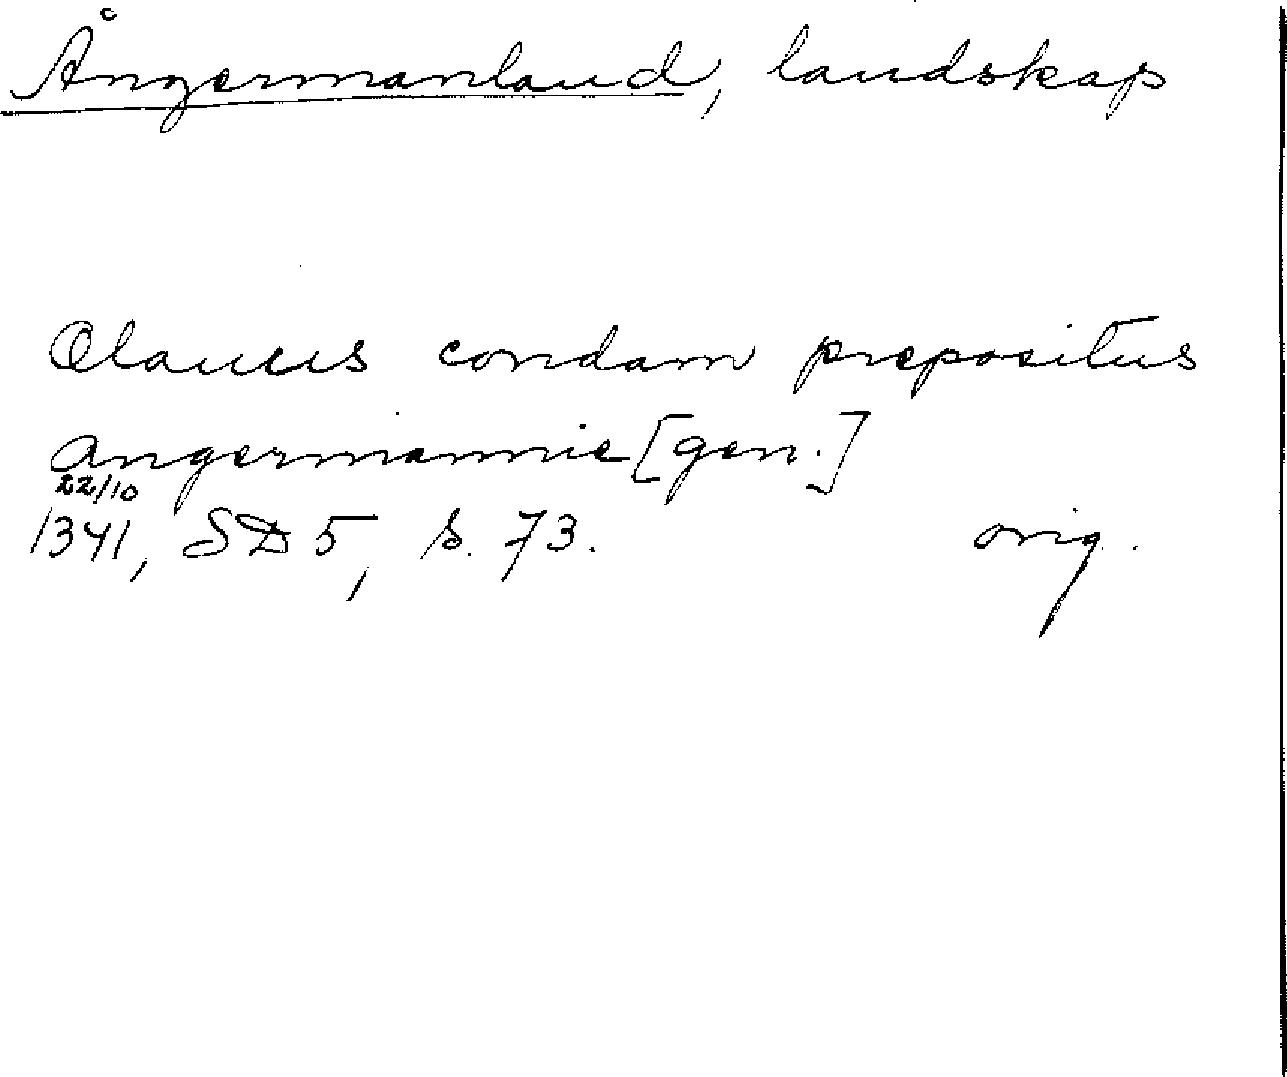 Ångermanland, landskap
Olauus condam prepositus
Angermannie [gen.]
22/10
1341, SD 5, s. 73. orig.